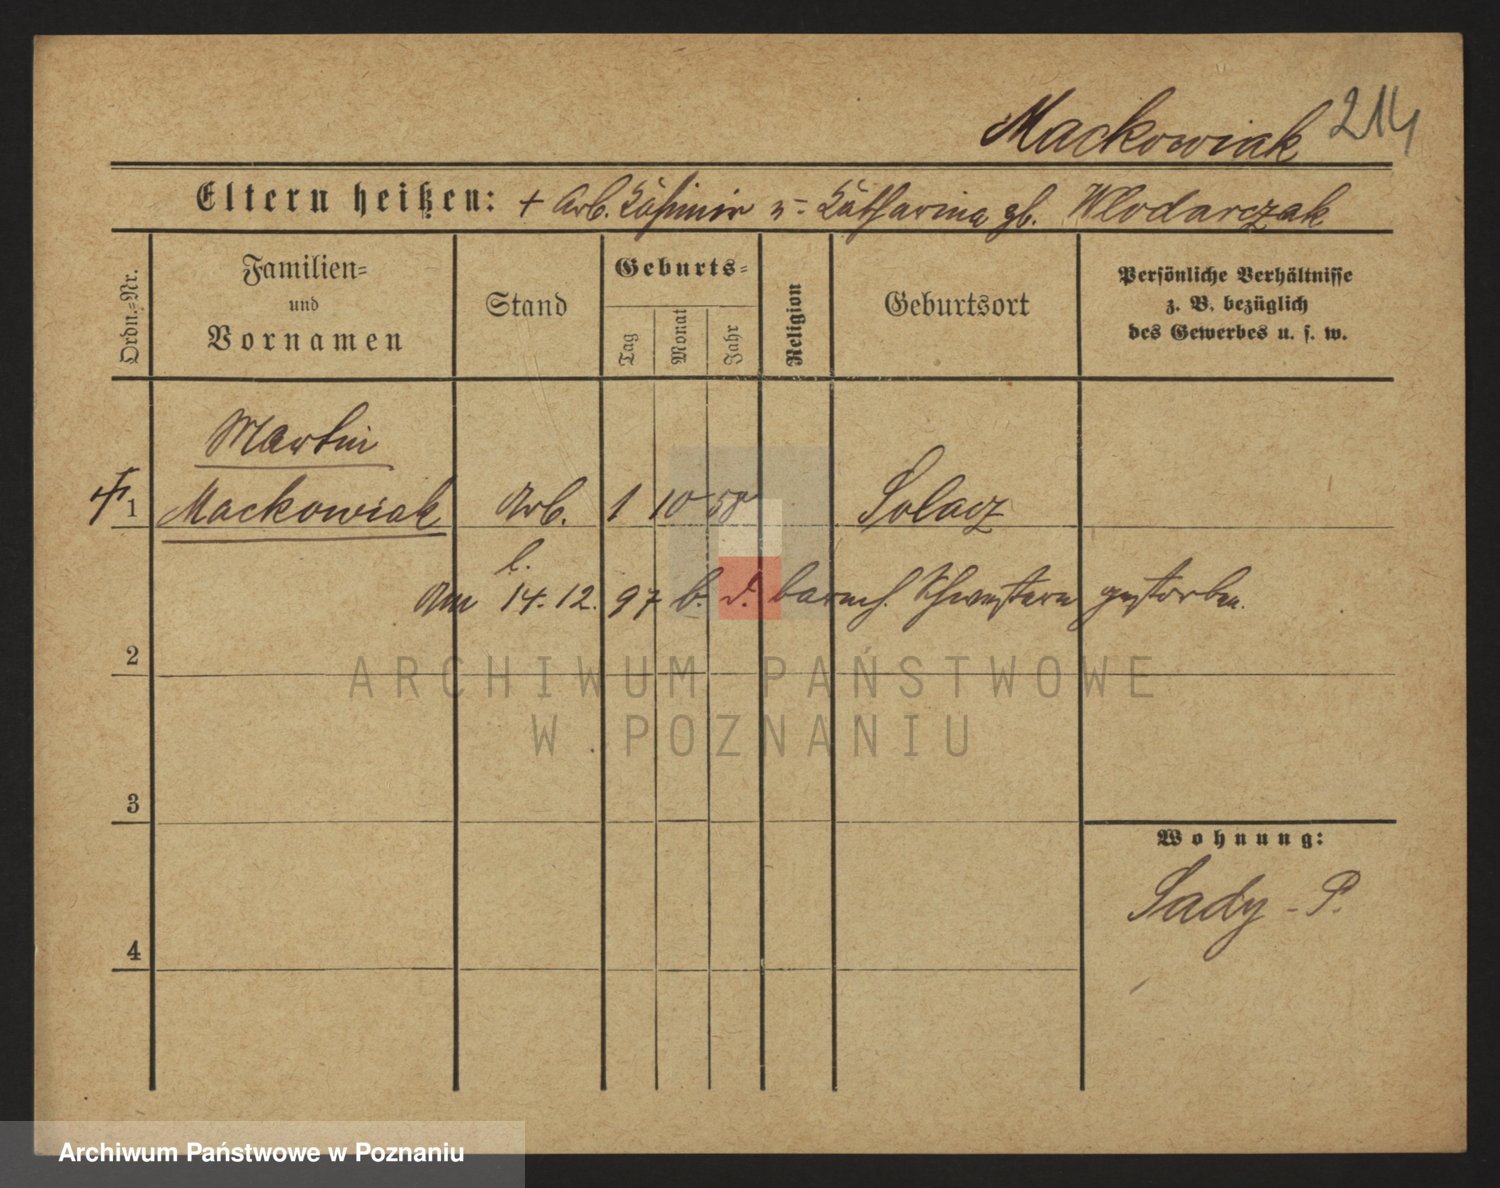 Mackowiak 214
Eltern heißen: + Arb. Kasimir u. Katharina gb. Wlodarczak
Ordn.=Nr.
Familien=
und
Vornamen
Stand
Geburts=
Tag
Monat
Jahr
Religion
Geburtsort
Persönliche Verhältnisse
z. B. bezüglich
des Gewerbes u. s. w.
Martin
1 Mackowiak Arb. 1 10 58 Solacz
l.
Am 14.12.97 b. d. barmh. Schwestern gestorben.
2
3
4
Wohnung:
Sady - P.
ARCHIWUM PAŃSTWOWE
W POZNANIU
Archiwum Państwowe w Poznaniu